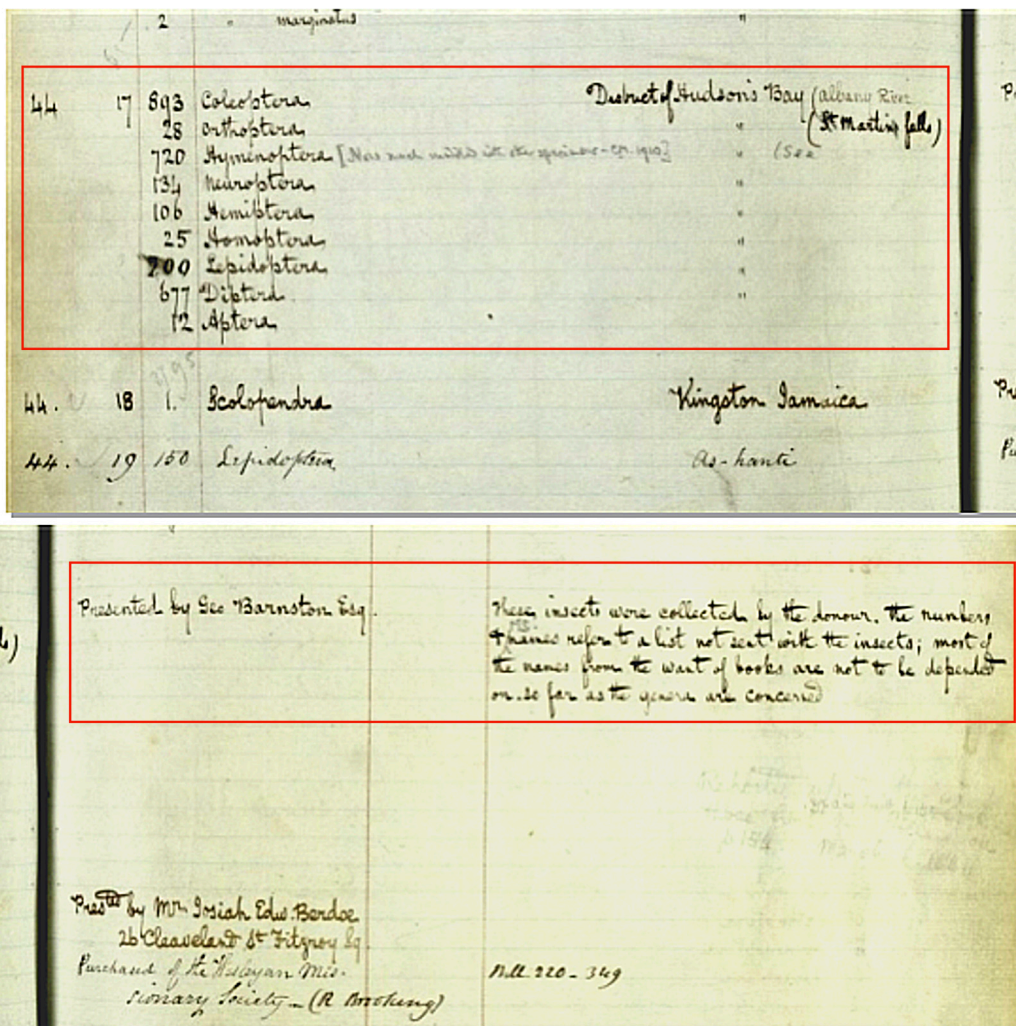 2 " marginatus "
44 17 893 Coleoptera District of Hudson's Bay (Albany River
28 Orthoptera " (St Martins falls)
720 Hymenoptera [ " (See
134 Neuroptera "
106 Hemiptera "
25 Homoptera "
200 Lepidoptera "
677 Diptera "
12 Aptera
2795
44. 18 1. Scolopendra Kingston Jamaica
44. 19 150 Lepidoptera As-hanti
Presented by Geo Barnston Esq. These insects were collected by the donour. the numbers
& names refer to a list not sent with the insects; most of
the names from the want of books are not to be depended
on. so far as the genera are concerned
Prested by Mr. Josiah Edw. Berdoe
26 Cleaveland St Fitzroy Sq
Purchased of the Wesleyan Mis- Nll. 220-349
sionary Society - (R Brooking)